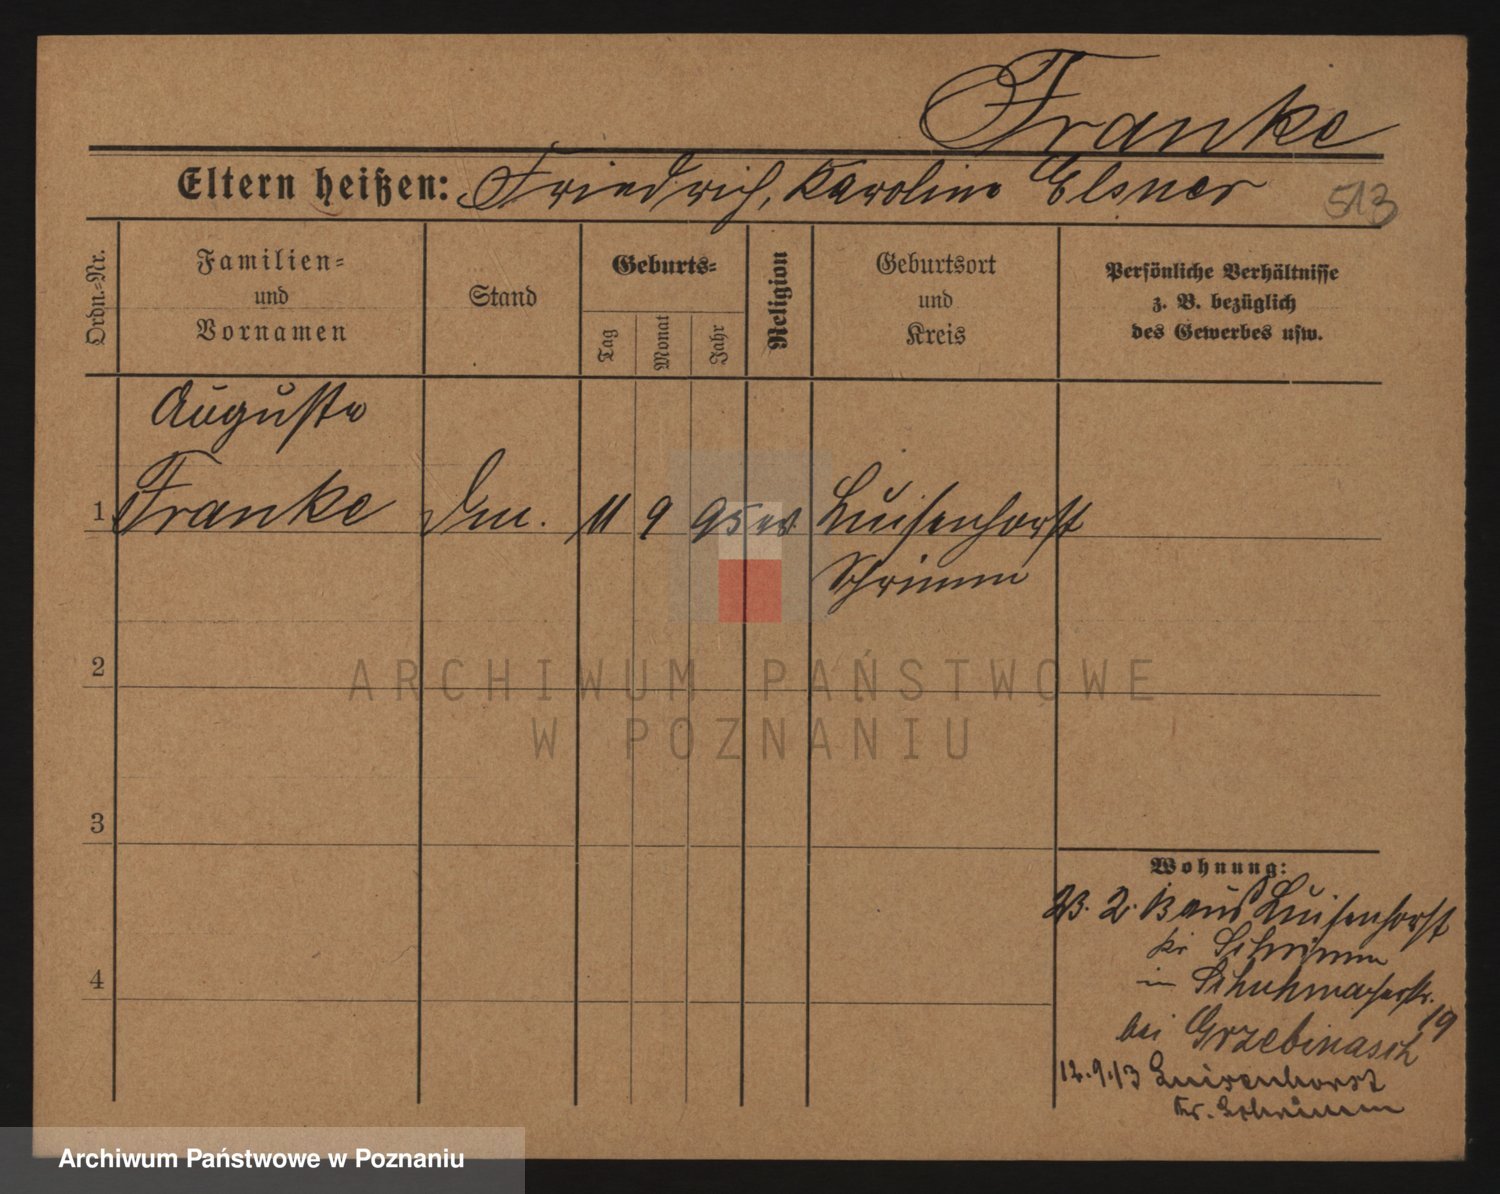 Franke
Eltern heißen: Friedrich, Karoline Elsner
513
Ordn.-Nr.
Familien-
und
Vornamen
Stand
Geburts-
Tag
Monat
Jahr
Religion
Geburtsort
und
Kreis
Persönliche Verhältnisse
z. B. bezüglich
des Gewerbes usw.
Auguste
1 Franke 11 9 95 ev Luisenhorst
Schrimm
2
3
4
ARCHIWUM PAŃSTWOWE
W POZNANIU
Wohnung:
2. 13 aus Luisenhorst
Kr Schrimm
in Schuhmacherstr.
19
bei Grzebinasch
12.9.13 Luisenhorst
Kr. Schrimm
Archiwum Państwowe w Poznaniu